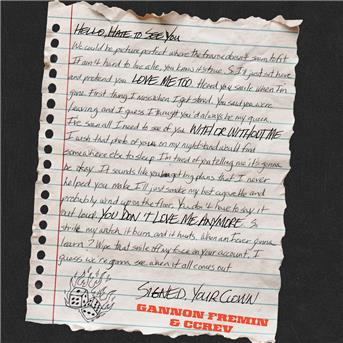 HELLO, HATE TO SEE YOU
We could be picture perfect where the frame doesn't seem to fit
If am 4 hard to love alie, you know it's true. So I'll just sit here
and pretend you LOVE ME TOO. Heard you smile when I'm
gone. First thing I miss when I get stoned. You said you were
leaving and I guess I thought you'd always be my queen.
I've seen all I need to see of you WITH OR WITHOUT ME
I wish that pack of yours on my nightstand would find
somewhere else to sleep. I'm tired of you telling me it's gonna
be okay. It sounds like you got big plans that I never
helped you make. I'll just smoke my last cigarette and
probably wind up on the time. You don't have to say it
out loud. YOU DON'T LOVE ME ANYMORE. So
strike my match, it burn, and it hurts. When am I ever gonna
learn? Wipe that smile off my face on your account, I
guess we're gonna see when it all comes out.
SIGNED, YOUR CLOWN
GANNON FREMIN
& CCREV